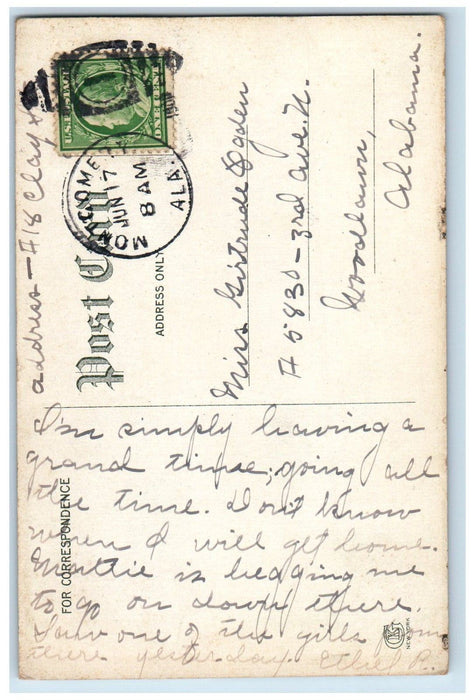 U.S. POSTAGE
ONE CENT
MONTGOMERY
JUN 17
8 AM
ALA.
Post Card
ADDRESS ONLY
address - 418 Clay
Miss Girtrude Ogden
# 5830 - 3rd Ave. N.
Woodlawn,
Alabama.
FOR CORRESPONDENCE
I'm simply having a
grand time; going all
the time. Dont know
when I will get home.
Mattie is begging me
to go on down there.
Saw one of the girls from
there yesterday. Ethel R.
NEW YORK